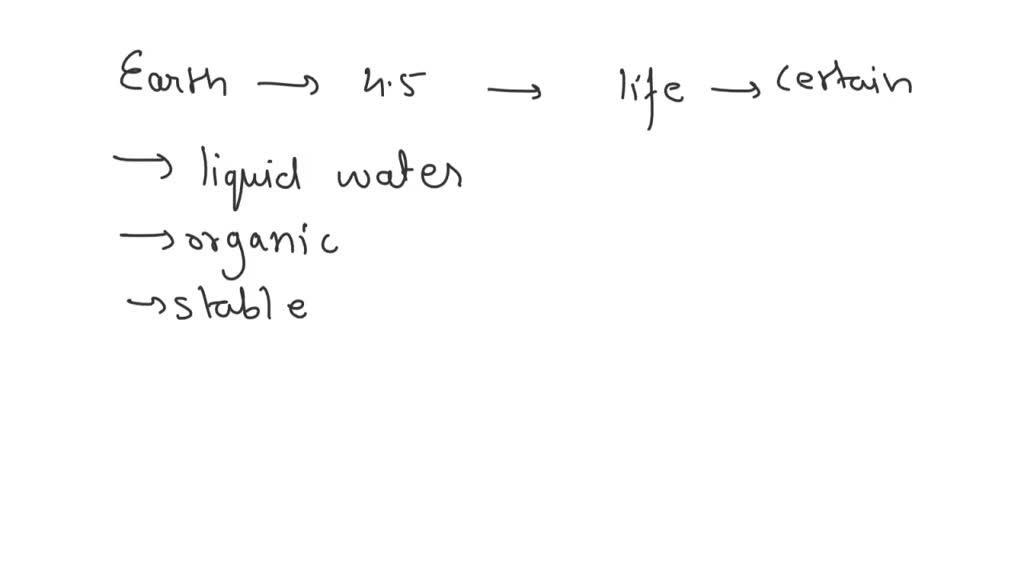 Earth → 4.5 → life → certain
→ liquid water
→ organic
→ stable